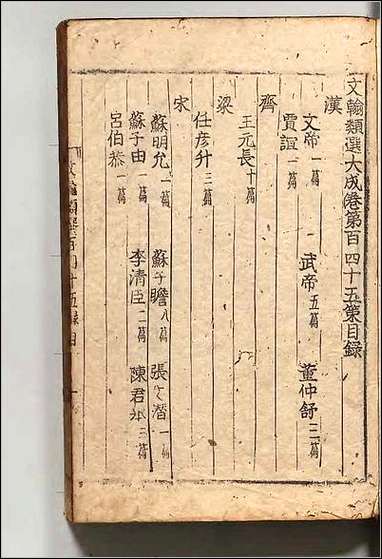 文翰類選大成卷第百四十五策目録
漢
文帝一篇 武帝五篇 董仲舒三篇
賈誼一篇
齊
王元長十篇
梁
任彥升三篇
宋
蘇明允一篇 蘇子瞻八篇 張文潛一篇
蘇子由一篇 李清臣二篇 陳君舉三篇
呂伯恭一篇
文翰類選百四十五録目 一